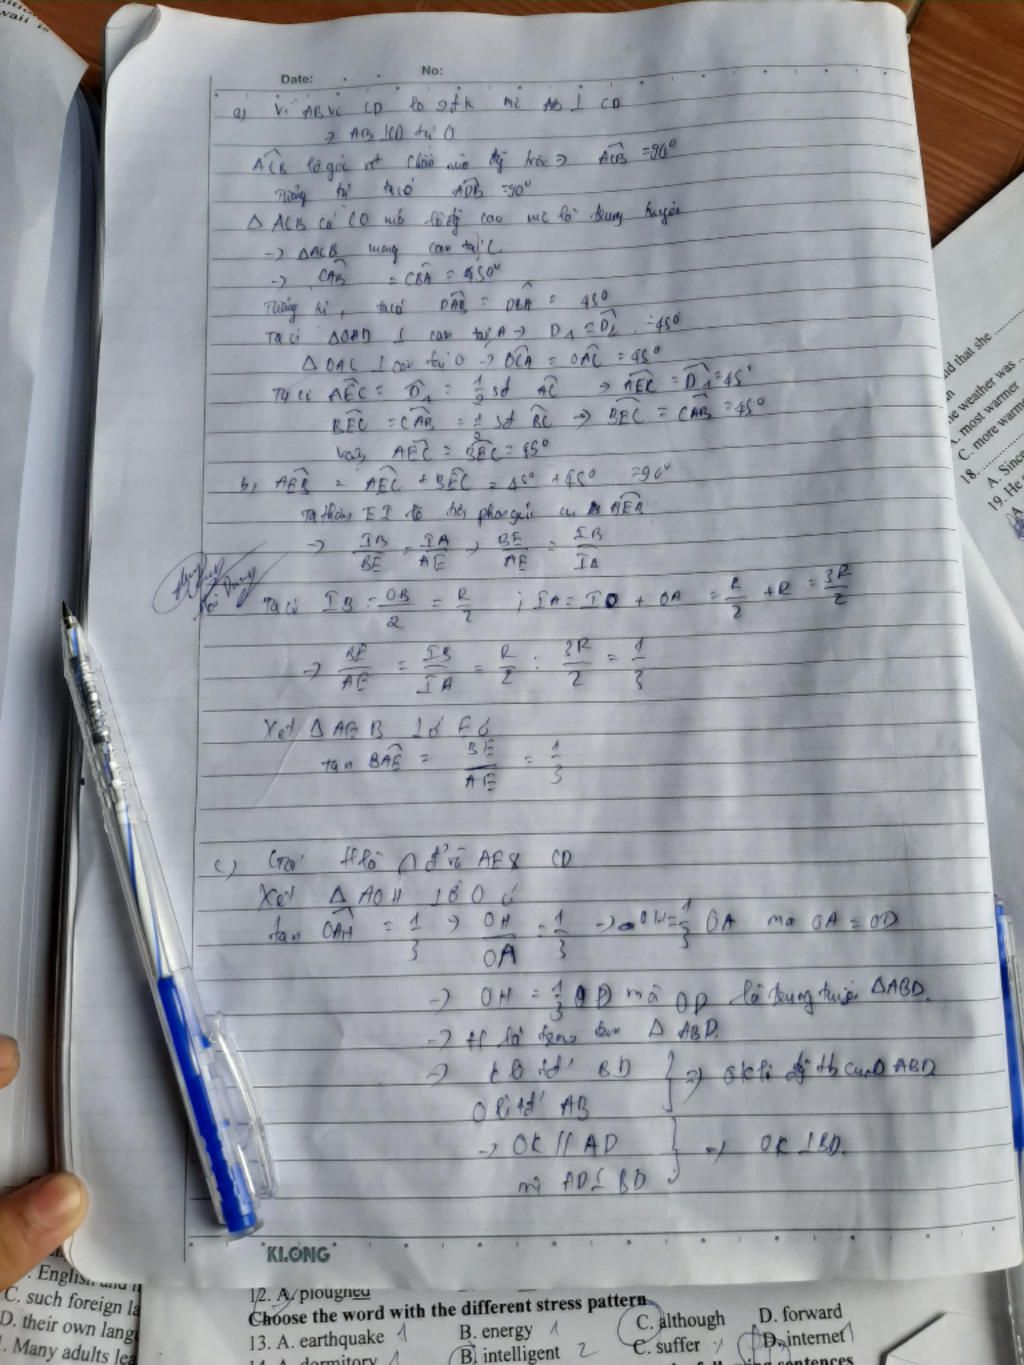 waii is
Date: No:
a) Vì AB và CD là 2đk mà AB ⊥ CD
→ AB ⊥ CD tại O
ACB là góc nt chắn nửa đg tròn → ACB = 90°
Tương tự ta có ADB = 90°
Δ ACB có CO là đg cao mà là trung tuyến
→ ΔACB cân tại C
→ CAB = CBA = 450°
Tương tự, ta có DAB = DBA = 45°
Ta có ΔOAD ⊥ cân tại A → D1 = D2 = 45°
Δ OAC ⊥ cân tại O → OCA = OAC = 45°
Ta có AEC = D1 = 1/2 sđ AC → AEC = D1 = 45°
BEC = CAB = 1/2 sđ BC → BEC = CAB = 45°
Vậy AEC = BEC = 45°
b, AEB = AEC + BEC = 45° + 45° = 90°
Ta thấy EI là phân giác AEB
→ IB/BE = IA/AE → BE/AE = IB/IA
Ta có IB = OB/2 = R/2 ; IA = IO + OA = R/2 + R = 3R/2
→ BE/AE = IB/IA = R/2 : 3R/2 = 1/3
Xét Δ AEB ⊥ ở E có
tan BAE = BE/AE = 1/3
c) Gọi H là ∩ đ' và AE & CD
Xét Δ AOH ⊥ ở O có
tan OAH = 1/3 → OH/OA = 1/3 → OH = 1/3 OA mà OA = OD
→ OH = 1/3 OD mà OD là trung tuyến ΔABD.
→ H là trọng tâm Δ ABD.
→ K là tđ' BD } ⇒ OK là đg tb của Δ ABD
O là tđ' AB
→ OK // AD } ⇒ OK ⊥ BD.
mà AD ⊥ BD
KLONG
id that she
e weather was
A. most warmer
C. more warm
18.
A. Since
19. He
A
. English and
C. such foreign la
D. their own lang
. Many adults lea
12. A. ploughed
Choose the word with the different stress pattern
13. A. earthquake 1 B. energy 1 C. although D. forward
A. dormitory 1 B. intelligent 2 C. suffer D. internet 1
sentences